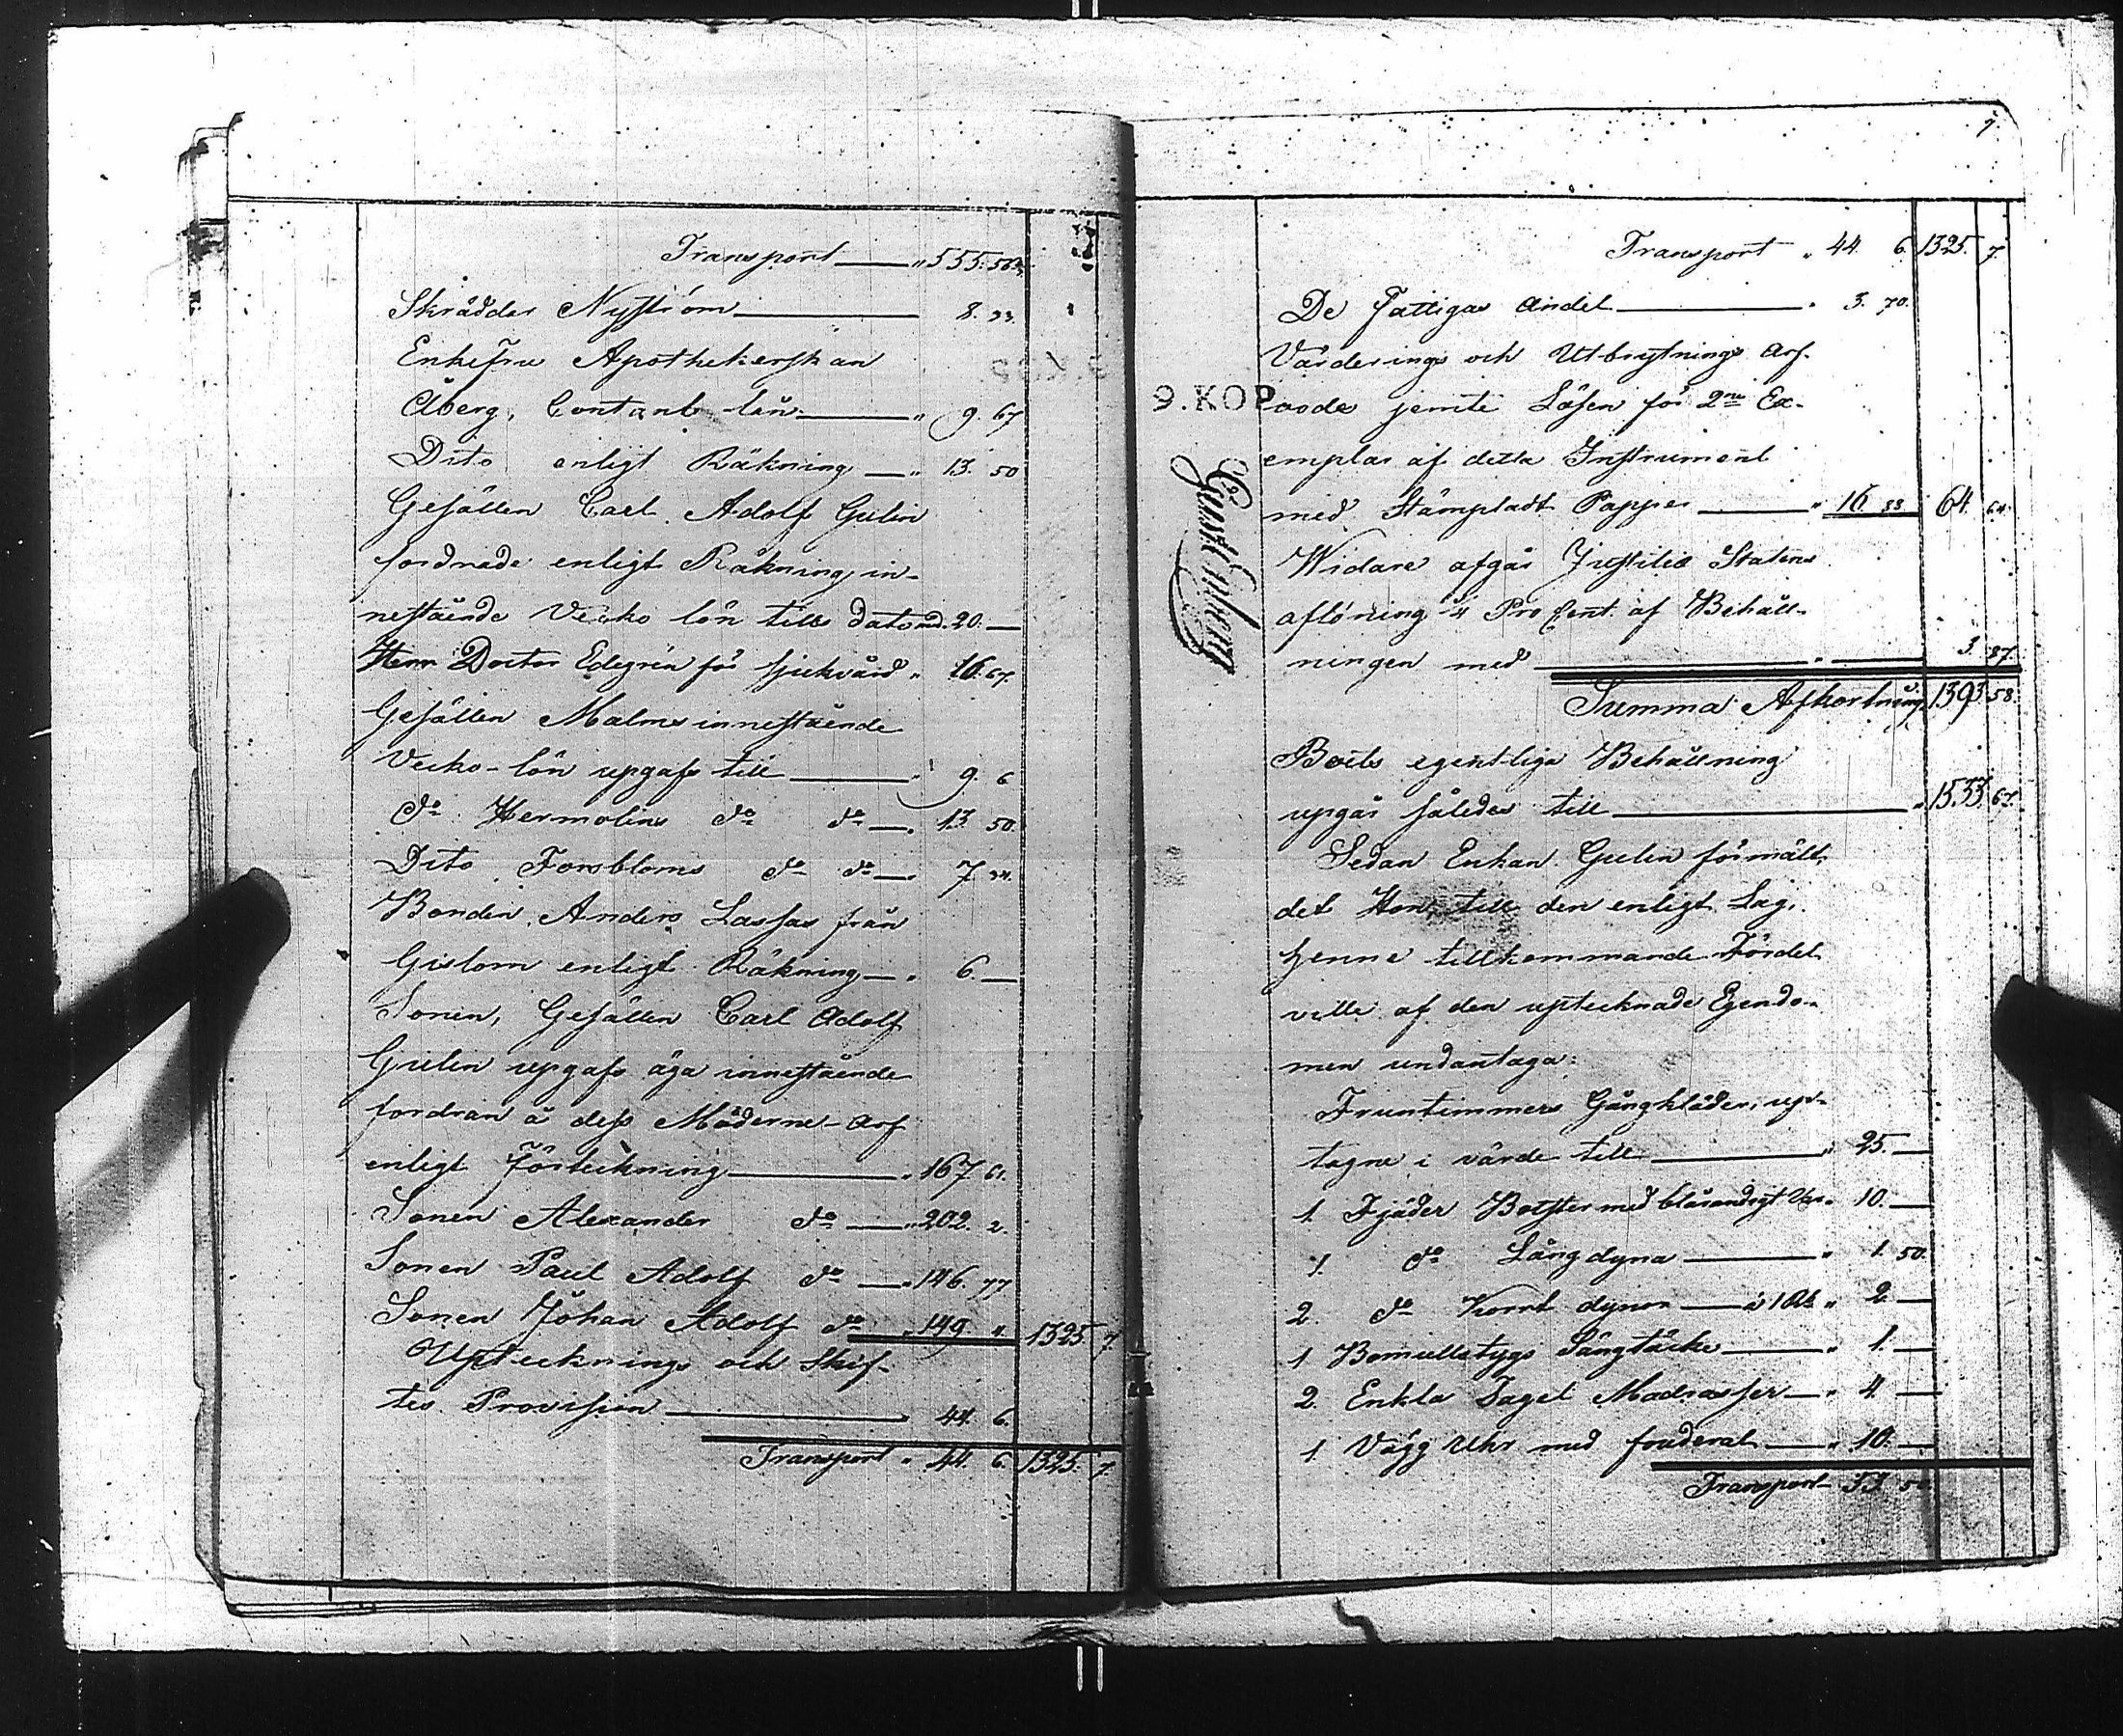 Transport „ 555. 56
Skräddar Nyström 8. 33.
Enkefru Apothekerskan
Åberg, Contant lån „ 9. 67
Dito enligt Räkning „ 13. 50
Gesällen Carl Adolf Gulin
fordrade enligt Räkning in-
nestående Vecko lön till dato 20. —
Herr Doctor Edgren för sjukvård „ 16. 67.
Gesällen Malms innestående
Vecko-lön upgafs till „ 9. 6
do Hermolins do do „ 13 50.
Dito Forsbloms do do 7 34.
Bonden Anders Lassas från
Gislom enligt Räkning „ 6. —
Sonen, Gesällen Carl Adolf
Gulin upgafs äga innestående
fordran å dess Möderne-arf
enligt Förteckning „ 167 61.
Sonen Alexander do „ 202. 2.
Sonen Paul Adolf do „ 146. 77
Sonen Johan Adolf do „ 149. „ 1325 7.
Uptecknings och Skif-
tes Provision 44. 6.
Transport „ 44. 6. 1325. 7.
7.
Transport „ 44. 6. 1325. 7.
De Fattigas andel „ 3. 70.
Värderings och Utbrytnings arf-
9. KOP
vode jemte Lösen för 2ne Ex-
emplar af detta Instrument
med Stämpladt Papper „ 16. 88 64. 64.
Widare afgår Justitiæ Statens
aflöning ¼ Pro Cent af Behåll-
ningen med „ 3. 87.
Summa Afkortning 1393 58.
Boets egentliga Behållning
upgår således till „ 1533 67.
Sedan Enkan Gulin förmält,
det Hon, till den enligt Lag
henne tillkommande Fördel
ville af den uptecknade Egendo-
men undantaga:
Fruntimmers Gångkläder, up-
tagne i värde till „ 25. —
1. Fjäder Bolster med blårandigt Var „ 10. —
1. do Långdyna „ 1. 50.
2. do Kortt dynor à 1 Rb „ 2 —
1 Bomullstygs Sängtäcke „ 1. —
2. Enkla Tagel Madrasser „ 4 —
1. Vägg Uhr med fouderal „ 10. —
Transport 53 50